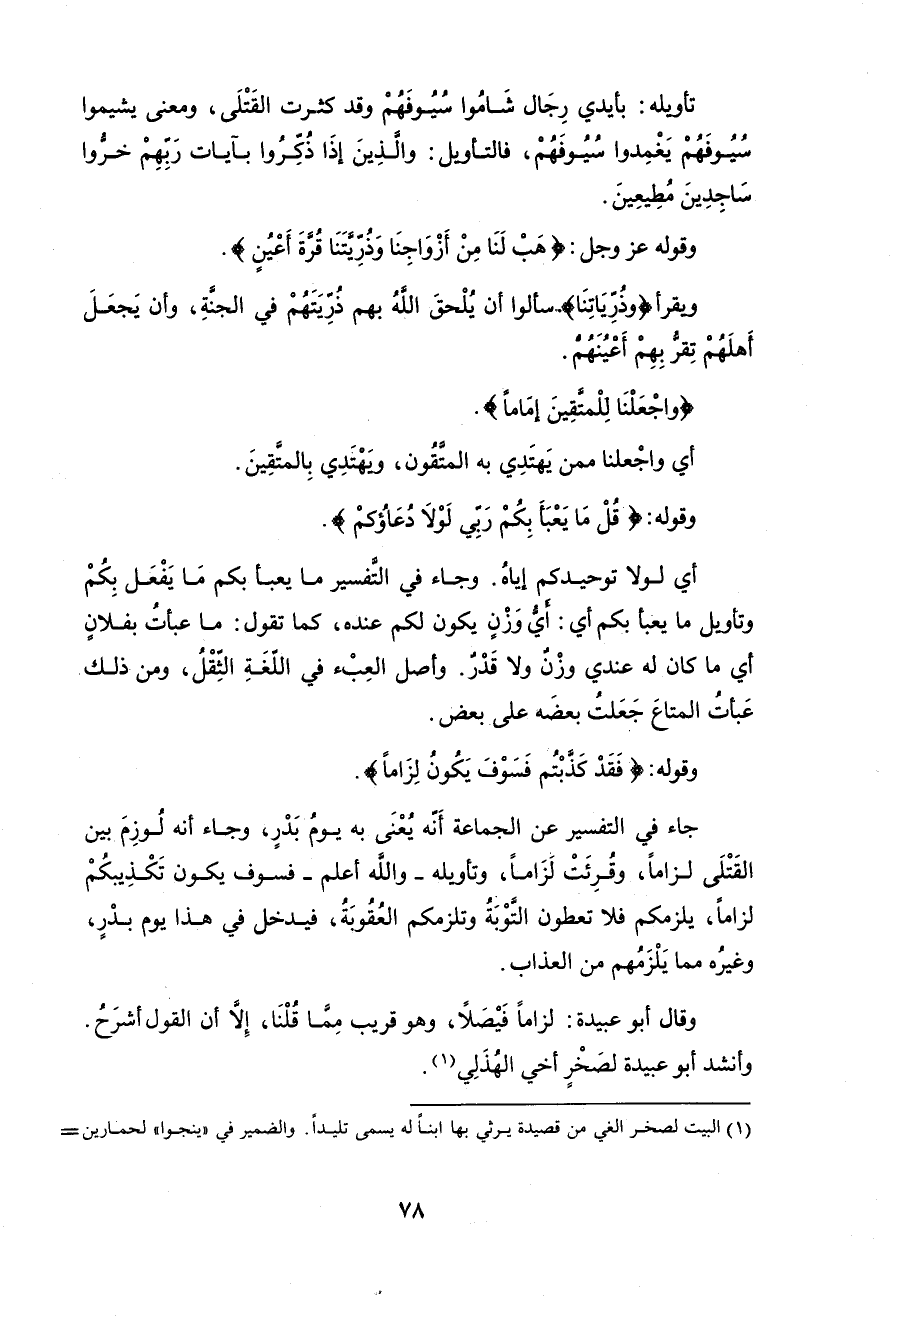 تأويله: بأيدي رِجَال شَامُوا سُيُوفَهُمْ وقد كثرت القَتْلَى، ومعنى يشيموا
سُيُوفَهُمْ يَغْمِدوا سُيُوفَهُمْ، فالتأويل: والَّذِينَ إذَا ذُكِّرُوا بآيات رَبِّهِمْ خرُّوا
سَاجِدِينَ مُطِيعِينَ.
وقوله عز وجل: ﴿هَبْ لَنَا مِنْ أَزْوَاجِنَا وَذُرِّيَّتَنَا قُرَّةَ أَعْيُنٍ﴾.
ويقرأ ﴿وذُرِّيَاتِنَا﴾ سألوا أن يُلْحقَ اللَّهُ بهم ذُرِّيَتَهُمْ في الجنَّةِ، وأن يَجعَلَ
أَهلَهُمْ تِقرُّ بِهِمْ أَعْيُنَهُمُ.
﴿واجْعَلْنَا لِلْمتَّقِينَ إمَاماً﴾.
أي واجْعلنا ممن يَهتَدِي به المتَّقُون، ويَهْتَدِي بِالمتَّقِينَ.
وقوله: ﴿قُلْ مَا يَعْبَأَ بِكُمْ رَبِّي لَوْلَا دُعَاؤُكمْ﴾.
أي لولا توحيدكم إياهُ. وجاء في التَّفسير ما يعبأ بكم مَا يَفْعَل بِكُمْ
وتأويل ما يعبأ بكم أي: أَيُّ وَزْنٍ يكون لكم عنده، كما تقول: ما عبأتُ بفلانٍ
أي ما كان له عندي وزْنٌ ولا قَدْرٌ. وأصل العِبْء في اللّغَةِ الثِّقْلُ، ومن ذلك
عَبأتُ المتاعَ جَعَلتُ بعضَه على بعض.
وقوله: ﴿فَقَدْ كَذَّبْتُم فَسَوْفَ يَكُونُ لِزَاماً﴾.
جاء في التفسير عن الجماعة أَنَّه يُعْنَى به يومُ بَدْرٍ، وجاء أنه لُوزِمَ بين
القَتْلَى لزاماً، وقُرِئَتْ لَزَاماً، وتأويله - واللَّه أعلم - فسوف يكون تَكْذِيبكُمْ
لزاماً، يلزمكم فلا تعطون التَّوْبَةُ وتلزمكم العُقُوبَةُ، فيدخل في هذا يوم بدْرٍ،
وغيرُه مما يَلْزَمُهم من العذاب.
وقال أبو عبيدة: لزاماً فَيْصَلًا، وهو قريب مِمَّا قُلْنَا، إِلَّا أن القول أشرَحُ.
وأنشد أبو عبيدة لصَخْرٍ أخي الهُذَلِي(١).
(١) البيت لصخر الغي من قصيدة يرثي بها ابناً له يسمى تليداً. والضمير في «ينجوا» لحمارين =
٧٨